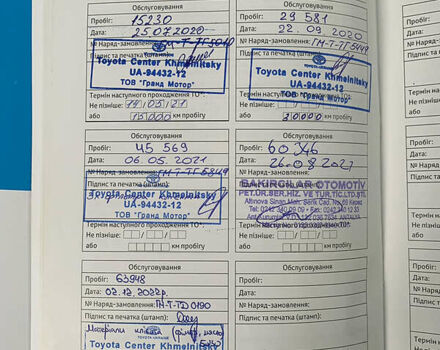 Обслуговування
Пробіг: 15230
Дата: 25.07.2020
№ Наряд-замовлення:
Підпис та печатка
Toyota Center Khmelnitsky
UA-94432-12
ТОВ "Гранд Мотор"
Термін наступного проходження ТО*:
Не пізніше: 14/05/21
або 15000 км пробігу
Обслуговування
Пробіг: 29 581
Дата: 22.09.2020
№ Наряд-замовлення: ГМ-Т-ТГ5449
Підпис та печатка (штамп):
Toyota Center Khmelnitsky
UA-94432-12
ТОВ "Гранд Мотор"
Термін
Не пізніше:
або 20000 км пробігу
Обслуговування
Пробіг: 45 569
Дата: 06.05.2021
№ Наряд-замовлення:
Підпис та печатка
Toyota Center Khmelnitsky
UA-94432-12
ТОВ "Гранд Мотор"
Термін наступного проходження ТО*:
Не пізніше:
або км пробігу
Обслуговування
Пробіг: 60 346
Дата: 26.08.2021
№ Наряд-замовлення:
BAKIRCILAR OTOMOTİV
PET.ÜR.SER.HİZ. VE TUR.TİC.LTD.ŞTİ.
Altınova Sinan Mah. Serik Cad.
ANTALYA
Термін наступного проходження ТО*:
Не пізніше:
або км пробігу
Обслуговування
Пробіг: 63948
Дата: 02.12.2022р.
№ Наряд-замовлення: ГМ-Т-ТД0190
Підпис та печатка (штамп):
Toyota Center Khmelnitsky
Обслуговування
Пробіг:
Дата:
№ Наряд-замовлення:
Підпис та печатка (штамп):
Термін наступного проходження ТО*:
Не пізніше:
або км пробігу